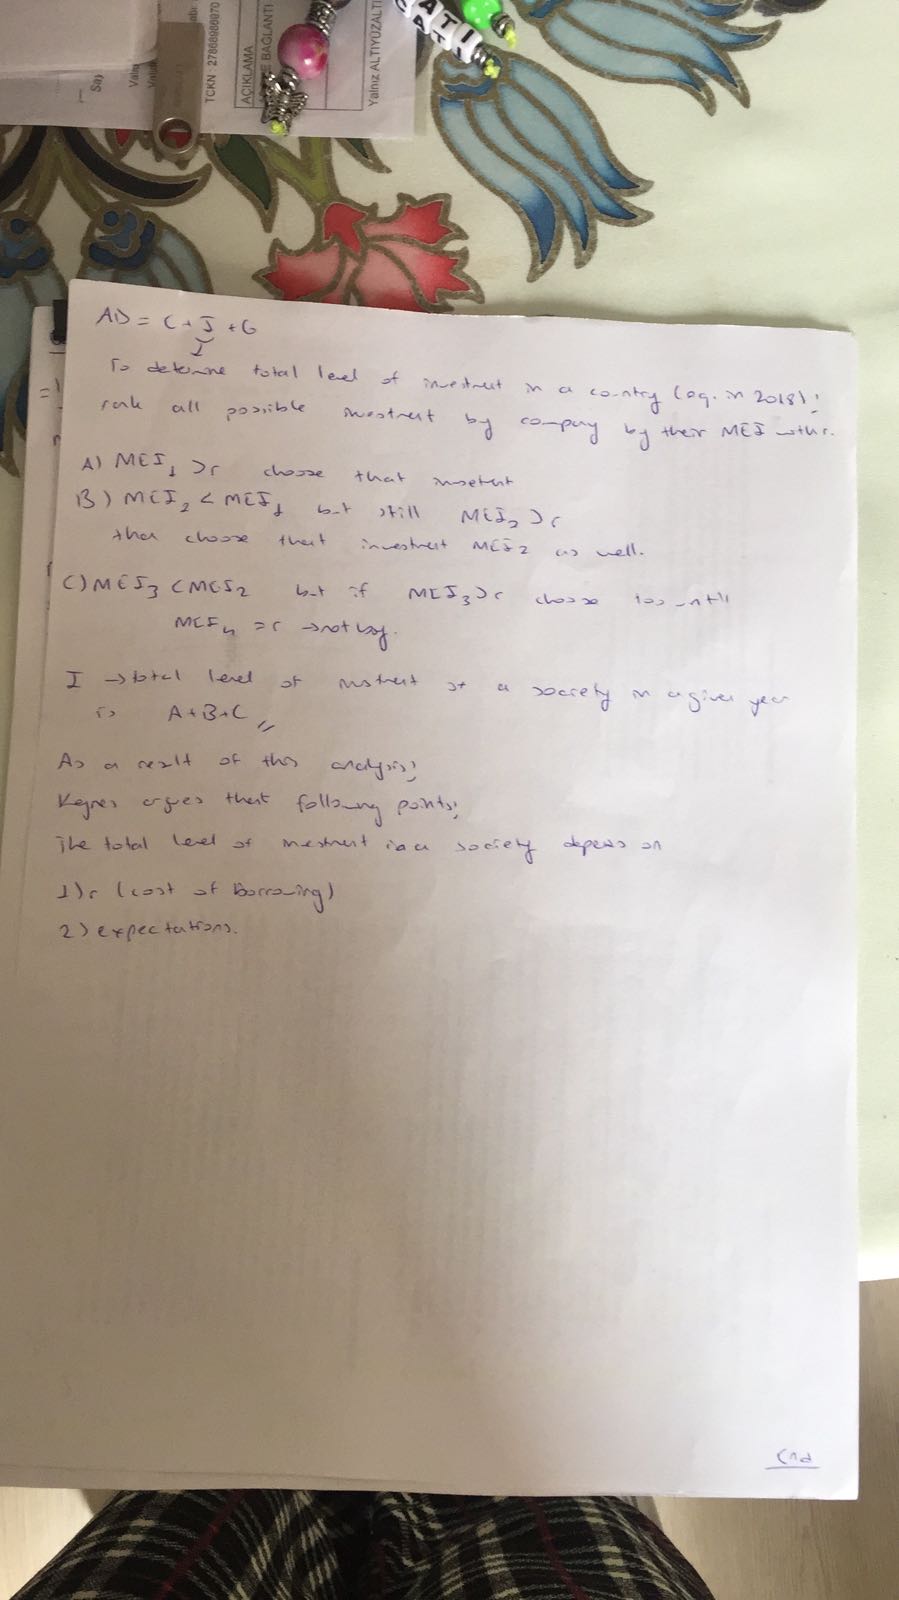 TCKN 27868986970
AÇIKLAMA
BAĞLANTI
Yalnız ALTIYÜZALTI
ATI
AD = C + I + G
To determne total level of investment in a country (eg. in 2018);
rank all possible investment by company by their MEI with r.
A) MEI1 > r choose that investment
B) MEI2 < MEI1 but still MEI2 > r
then choose that investment MEI2 as well.
C) MEI3 < MEI2 but if MEI3 > r choose too until
MEI4 = r → not buy.
I → total level of investment of a society in a given year
is A+B+C //
As a result of this analysis;
Keynes argues that following points;
The total level of investment in a society depends on
1) r (cost of borrowing)
2) expectations.
End